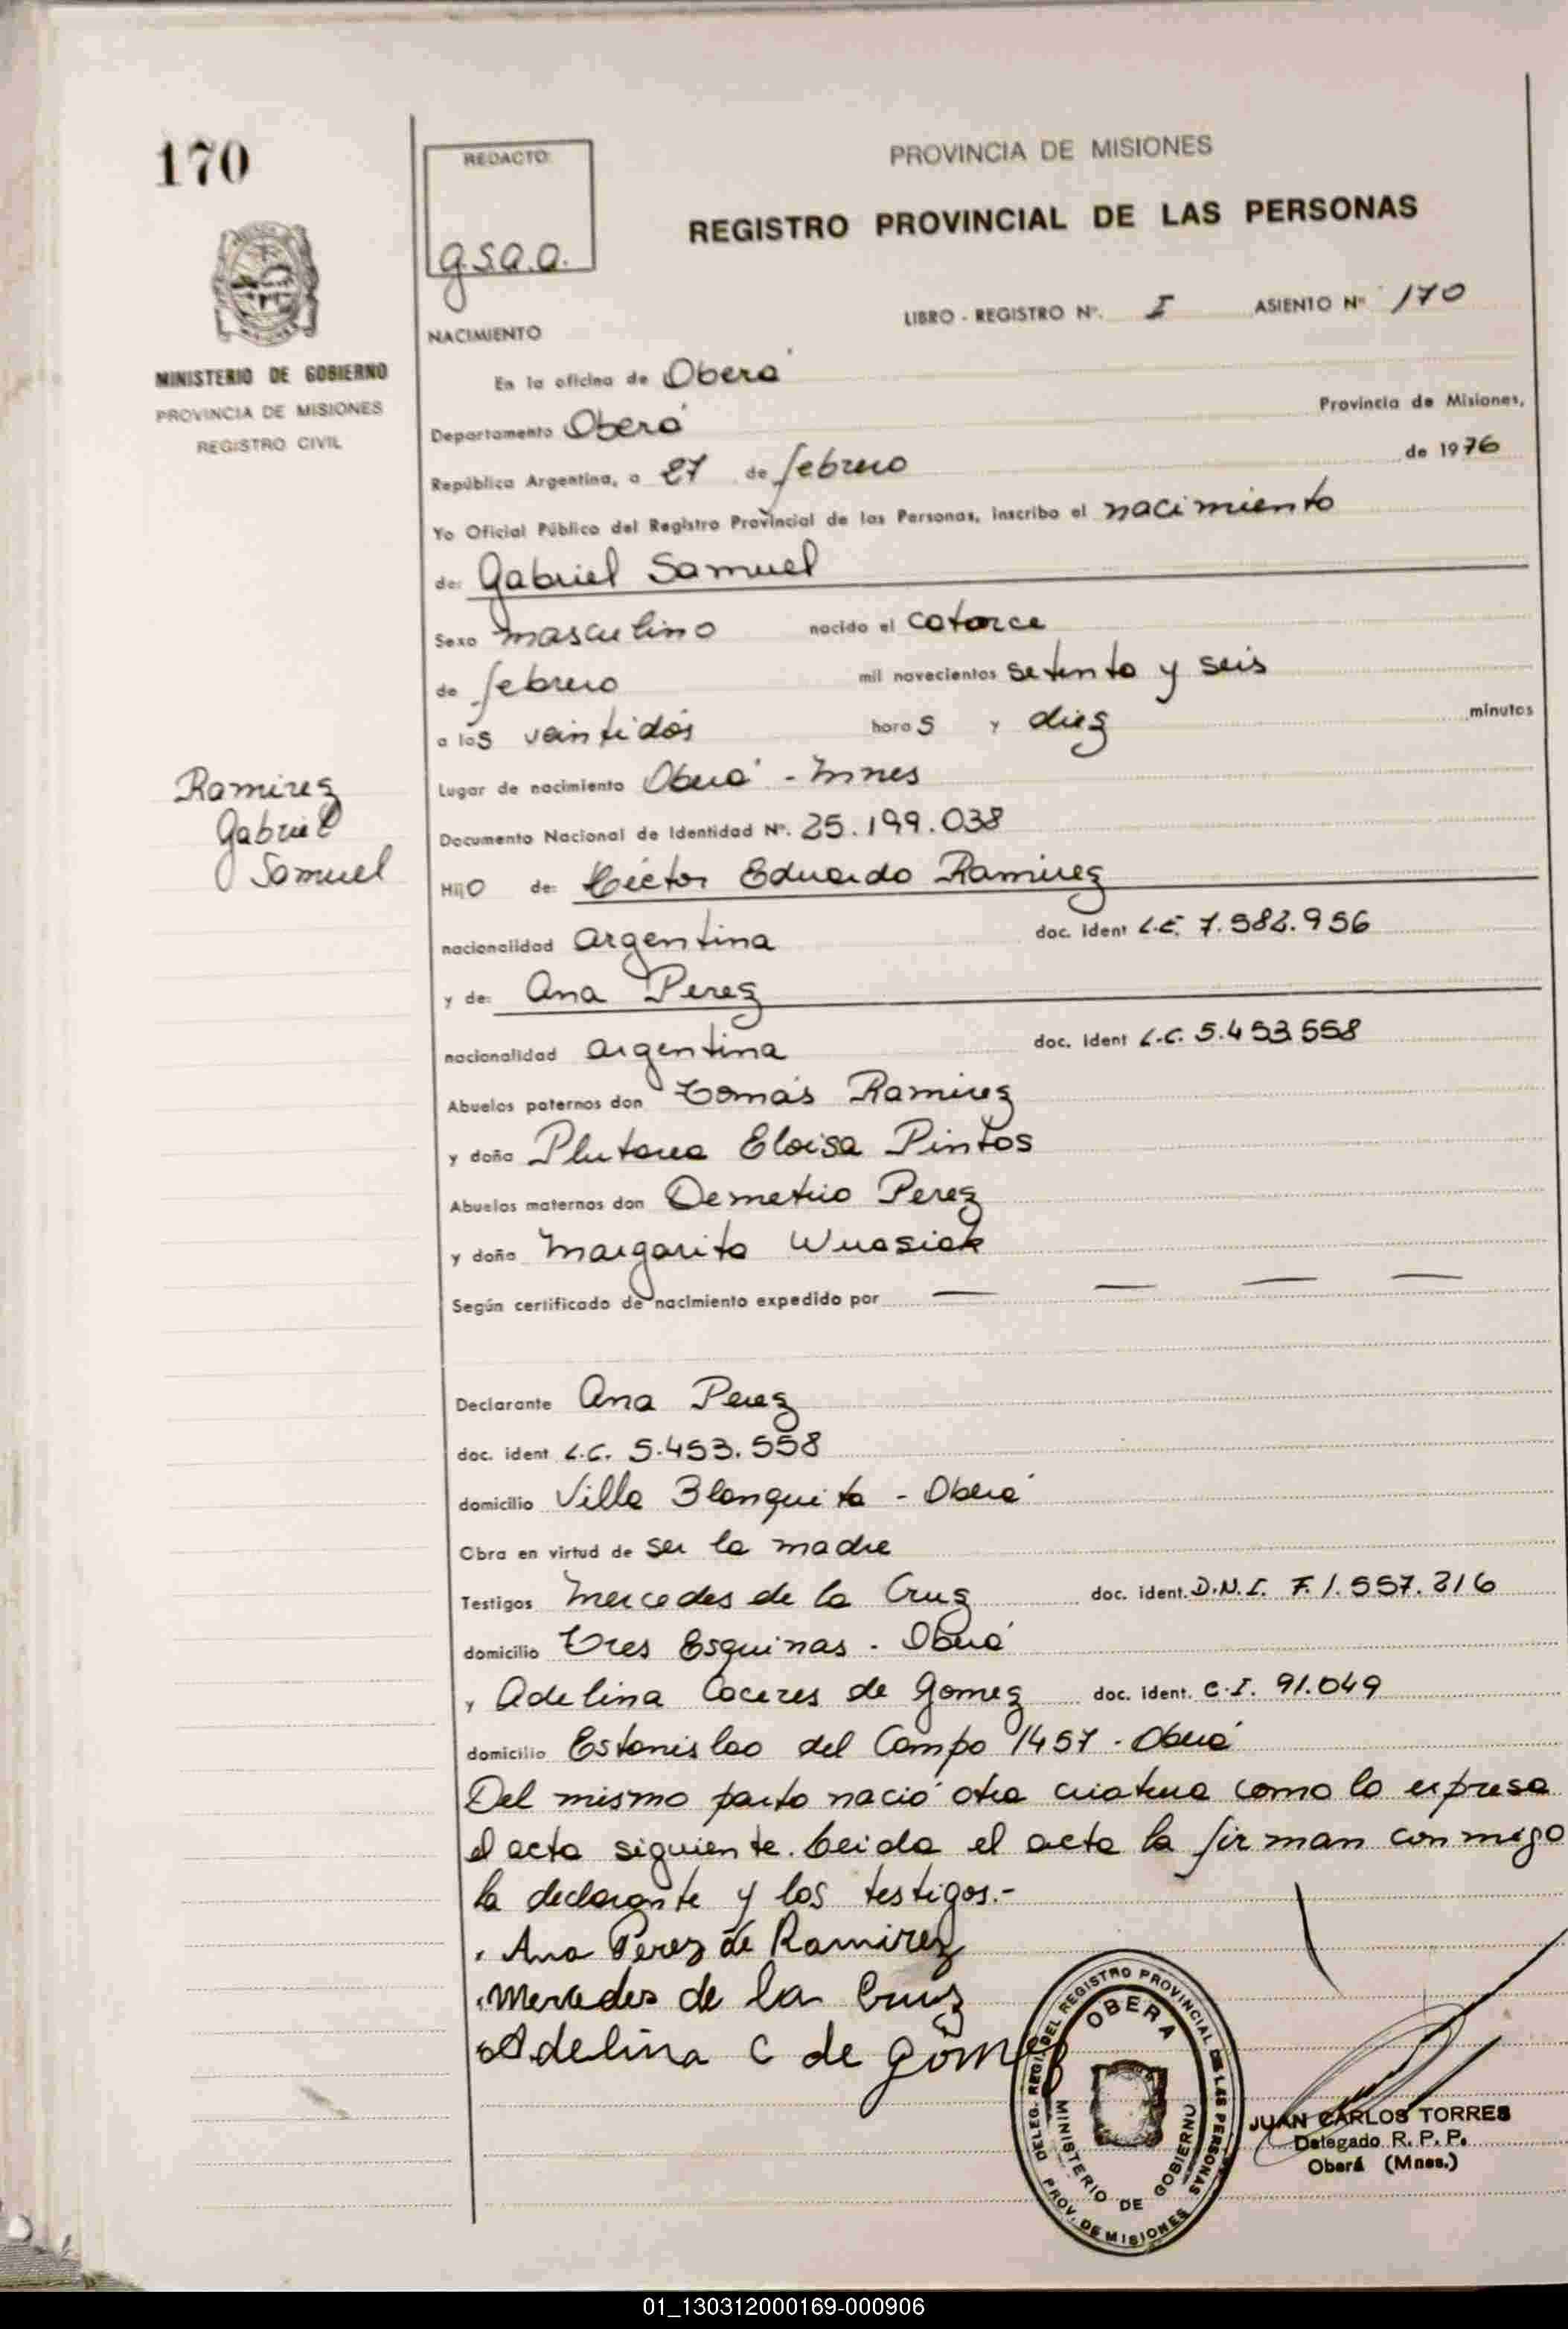 170
REDACTO:
g.s.a.a.
PROVINCIA DE MISIONES
REGISTRO PROVINCIAL DE LAS PERSONAS
LIBRO - REGISTRO Nº. I ASIENTO Nº 170
MINISTERIO DE GOBIERNO
PROVINCIA DE MISIONES
REGISTRO CIVIL
NACIMIENTO
En la oficina de Oberá
Provincia de Misiones,
Departamento Oberá
República Argentina, a 27 de febrero de 1976
Yo Oficial Público del Registro Provincial de las Personas, inscribo el nacimiento
de: Gabriel Samuel
Sexo masculino nacido el catorce
de febrero mil novecientos setenta y seis
a las veintidós horas y diez minutos
Lugar de nacimiento Oberá - Mnes
Documento Nacional de Identidad Nº. 25.199.038
Ramirez
Gabriel
Samuel
Hijo de: Héctor Eduardo Ramirez
nacionalidad argentina doc. ident L.E. 7.582.956
y de: Ana Perez
nacionalidad argentina doc. ident L.C. 5.453.558
Abuelos paternos don Tomás Ramirez
y doña Plutarca Eloisa Pintos
Abuelos maternos don Demetrio Perez
y doña Margarita Wuasiak
Según certificado de nacimiento expedido por — — — —
Declarante Ana Perez
doc. ident L.C. 5.453.558
domicilio Villa Blanquita - Oberá
Obra en virtud de ser la madre
Testigos Mercedes de la Cruz doc. ident. D.N.I. F. 1.557.216
domicilio Tres Esquinas - Oberá
y Adelina Caceres de Gomez doc. ident. C.I. 91.049
domicilio Estanislao del Campo 1457 - Oberá
Del mismo parto nació otra criatura como lo expresa
el acta siguiente. Leida el acta la firman conmigo
la declarante y los testigos.-
Ana Perez de Ramirez
Mercedes de la Cruz
Adelina C de Gómez
DELEG. REG. DEL REGISTRO PROVINCIAL DE LAS PERSONAS
OBERA
MINISTERIO DE GOBIERNO
PROV. DE MISIONES
JUAN CARLOS TORRES
Delegado R. P. P.
Oberá (Mnes.)
01_130312000169-000906